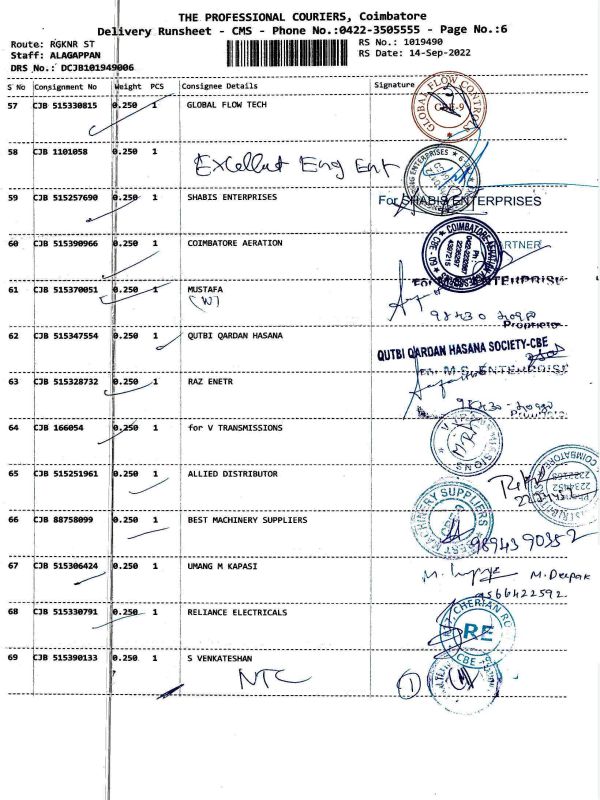 THE PROFESSIONAL COURIERS, Coimbatore
Delivery Runsheet - CMS - Phone No.:0422-3505555 - Page No.:6
Route: RGKNR ST
RS No.: 1019490
Staff: ALAGAPPAN
RS Date: 14-Sep-2022
DRS No.: DCJB101949006
S No Consignment No Weight PCS Consignee Details Signature
57 CJB 515330815 0.250 1 GLOBAL FLOW TECH
GLOBAL FLOW CONTROLS CBE-9
58 CJB 1101058 0.250 1
Excellent Eng Ent
59 CJB 515257690 0.250 1 SHABIS ENTERPRISES
For SHABIS ENTERPRISES
PARTNER
60 CJB 515390966 0.250 1 COIMBATORE AERATION
COIMBATORE AERATION
CBE - 09
61 CJB 515370051 0.250 1 MUSTAFA
(W)
ENTERPRISE
Proprietor
62 CJB 515347554 0.250 1 QUTBI QARDAN HASANA
QUTBI QARDAN HASANA SOCIETY-CBE
For M.S. ENTERPRISE
63 CJB 515328732 0.250 1 RAZ ENETR
64 CJB 166054 0.250 1 for V TRANSMISSIONS
65 CJB 515251961 0.250 1 ALLIED DISTRIBUTOR
COIMBATORE
66 CJB 88758099 0.250 1 BEST MACHINERY SUPPLIERS
BEST MACHINERY SUPPLIERS CBE-9
9894390352
67 CJB 515306424 0.250 1 UMANG M KAPASI
M. Deepak
9566422592
68 CJB 515330791 0.250 1 RELIANCE ELECTRICALS
CHERIAN RO
RE
CBE -9
69 CJB 515390133 0.250 1 S VENKATESHAN
NTC
1